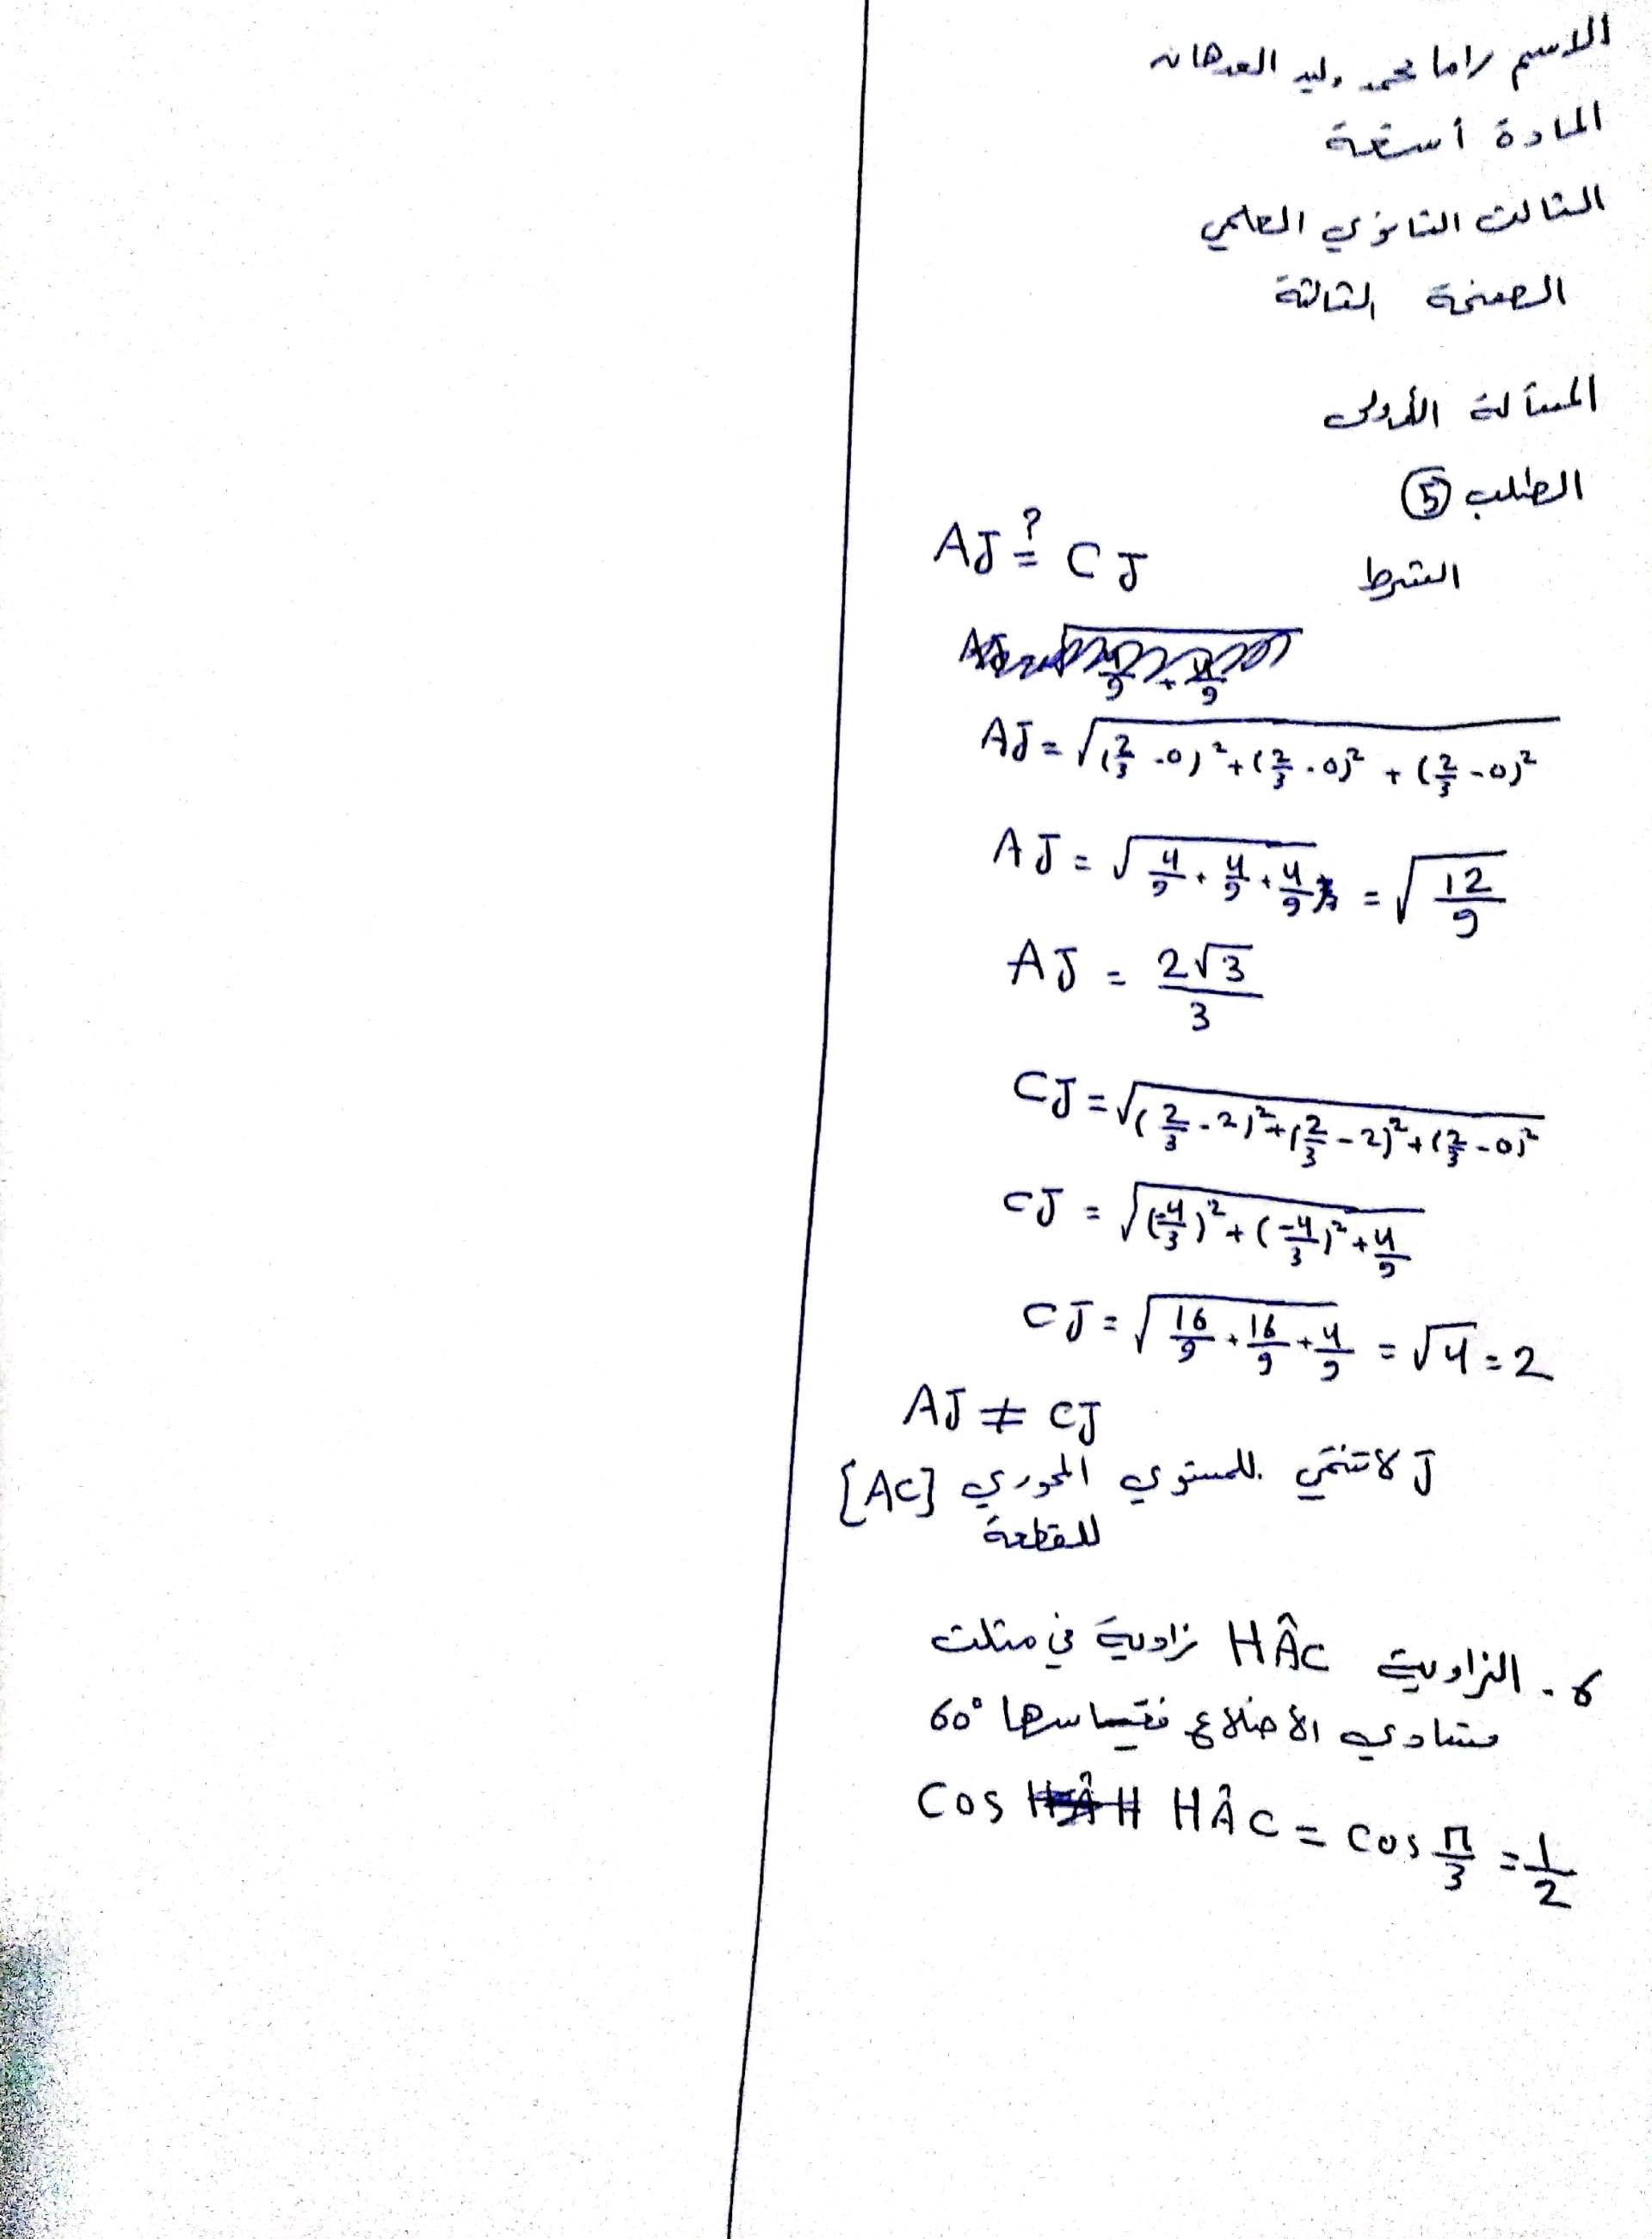 الاسم راما محمد وليد الدهان
المادة أشعة
الثالث الثانوي العلمي
الصفحة الثالثة
المسألة الأولى
الطلب ⑤
الشرط AJ ≟ CJ
AJ = √((2/3 - 0)² + (2/3 - 0)² + (2/3 - 0)²)
AJ = √(4/9 + 4/9 + 4/9) = √(12/9)
AJ = 2√3/3
CJ = √((2/3 - 2)² + (2/3 - 2)² + (2/3 - 0)²)
CJ = √((-4/3)² + (-4/3)² + 4/9)
CJ = √(16/9 + 16/9 + 4/9) = √4 = 2
AJ ≠ CJ
J لا تنتمي للمستوي المحوري [AC]
للقطعة
6 - الزاوية HÂC زاوية في مثلث
متساوي الأضلاع فقياسها 60°
Cos HÂC = cos π/3 = 1/2